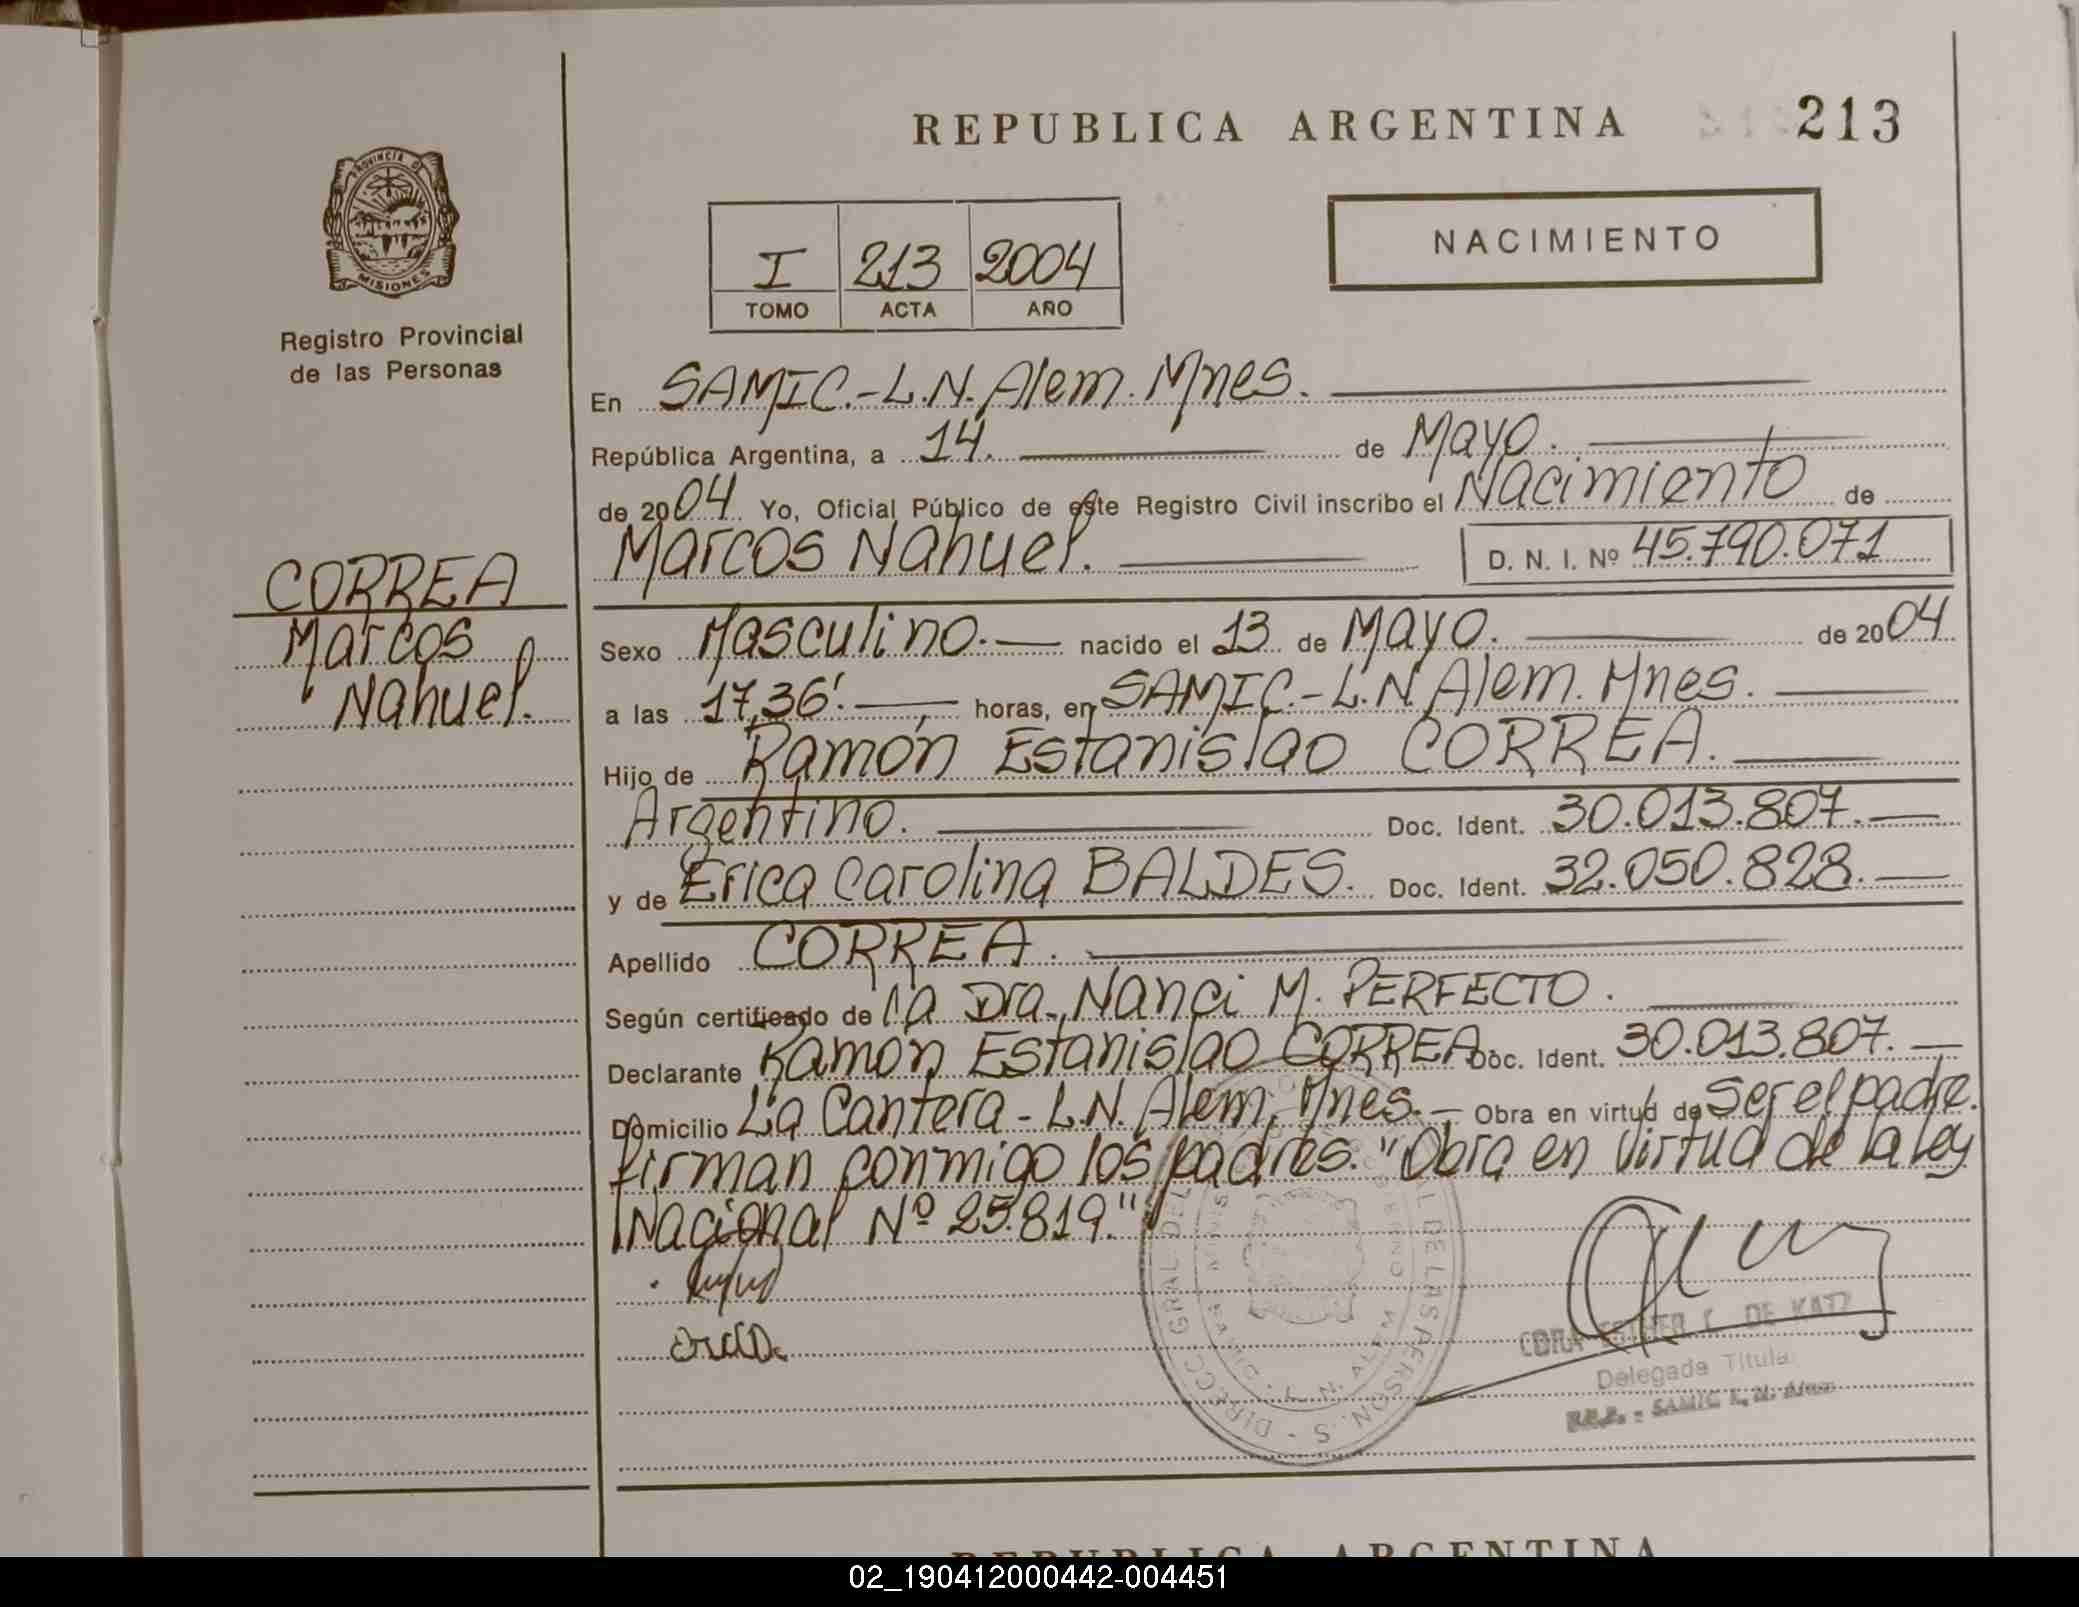 REPUBLICA ARGENTINA 213
PROVINCIA DE
MISIONES
Registro Provincial
de las Personas
I 213 2004
TOMO ACTA AÑO
NACIMIENTO
En SAMIC.-L.N. Alem. Mnes.
República Argentina, a 14. de Mayo.
de 2004. Yo, Oficial Público de este Registro Civil inscribo el Nacimiento de
Marcos Nahuel. D. N. I. Nº 45.790.071
CORREA
Marcos
Nahuel.
Sexo Masculino. nacido el 13 de Mayo. de 2004
a las 17,36'. horas, en SAMIC.-L.N. Alem. Mnes.
Hijo de Ramón Estanislao CORREA.
Argentino. Doc. Ident. 30.013.807.
y de Erica Carolina BALDES. Doc. Ident. 32.050.828.
Apellido CORREA.
Según certificado de la Dra. Nanci M. PERFECTO.
Declarante Ramón Estanislao CORREA Doc. Ident. 30.013.807.
Domicilio La Cantera - L.N. Alem, Mnes. Obra en virtud de ser el padre.
firman conmigo los padres. "Obra en virtud de la ley
Nacional Nº 25.819."
DE KATZ
Delegada Titular
SAMIC L. N. Alem
REPUBLICA ARGENTINA
02_190412000442-004451